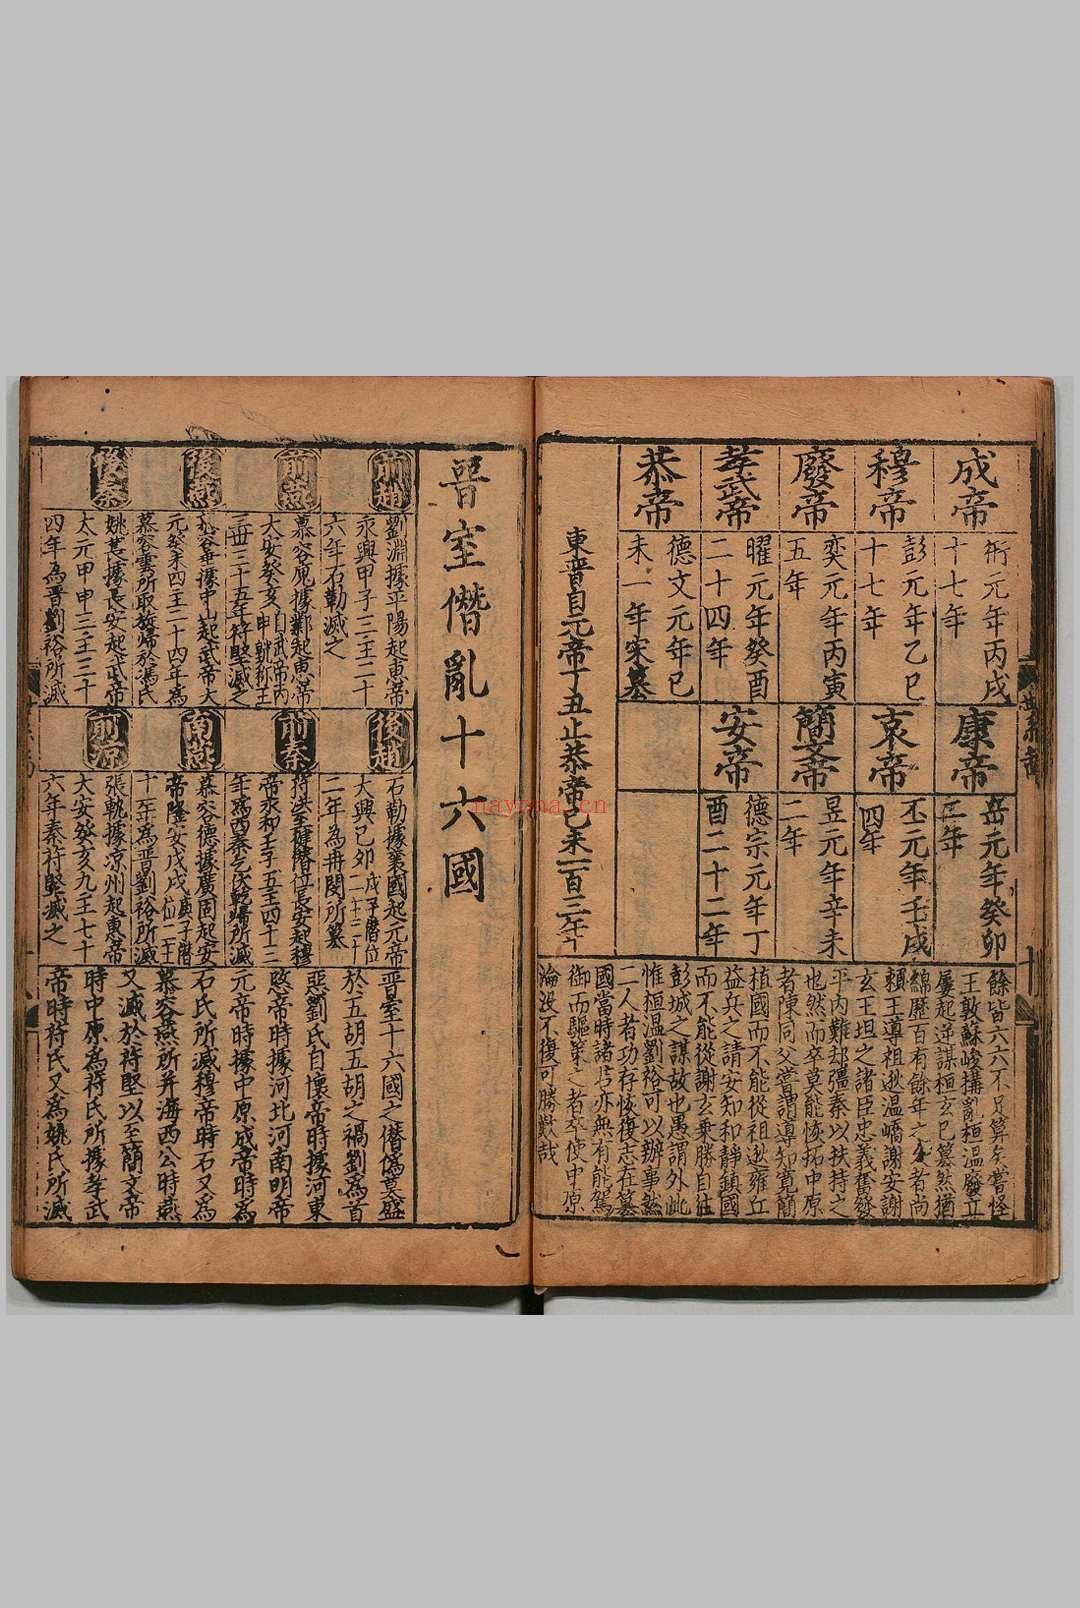 成帝
衍元年丙戌
十七年
穆帝
彭元年乙巳
十七年
廢帝
奕元年丙寅
五年
孝武帝
曜元年癸酉
二十四年
恭帝
德文元年己
未一年宋篡
康帝
岳元年癸卯
二年
哀帝
丕元年壬戌
四年
簡文帝
昱元年辛未
二年
安帝
德宗元年丁
酉二十二年
東晉自元帝丁丑止恭帝己未一百三年
餘皆六六不足算矣嘗怪
王敦蘇峻搆亂桓溫廢立
屢起逆謀桓玄已篡然猶
綿歷百有餘年之久者尚
賴王導祖逖温嶠謝安謝
玄王坦之諸臣忠義奮發
平內難却彊秦以扶持之
也然而卒莫能恢拓中原
者陳同父嘗謂導知寬簡
植國而不能從祖逖雍丘
益兵之請安知和靜鎮國
而不能從謝玄乗勝自往
彭城之謀故也愚謂外此
惟桓温劉裕可以辦事然
二人者功存恢復志在篡
國當時諸君亦無有能駕
御而驅策之者卒使中原
淪没不復可勝歎哉
晉室僭亂十六國
前趙
劉淵據平陽起惠帝
永興甲子三主二十
六年石勒滅之
前燕
慕容廆據鄴起惠帝
大安癸亥自武帝丙申號称王
三世三十五年符堅滅之
後燕
慕容垂據中山起武帝大
元癸未四主二十四年爲
慕容雲所取旋歸於馮氏
後秦
姚萇據長安起武帝
太元甲申三主三十
四年為晉劉裕所滅
後趙
石勒據襄國起元帝
大興己卯戊子僭位二十三
二年為冉閔所篡
前秦
符洪至健僭位長安起穆
帝永和壬子五主四十三
年為西秦乞伏乾歸所滅
南燕
慕容德據廣固起安
帝隆安戊戌庚子僭位二主
十一年為晋劉裕所滅
前凉
張軌據凉州起惠帝
大安癸亥九主七十
六年秦符堅滅之
晋室十六國之僭偽莫盛
於五胡五胡之禍劉為首
惡劉氏自懷帝時據河東
愍帝時據河北河南明帝
元帝時據中原成帝時為
石氏所滅穆帝時石又為
慕容燕所并海西公時燕
又滅於符堅以至簡文帝
時中原為符氏所據孝武
帝時符氏又為姚氏所滅
nayona.cn